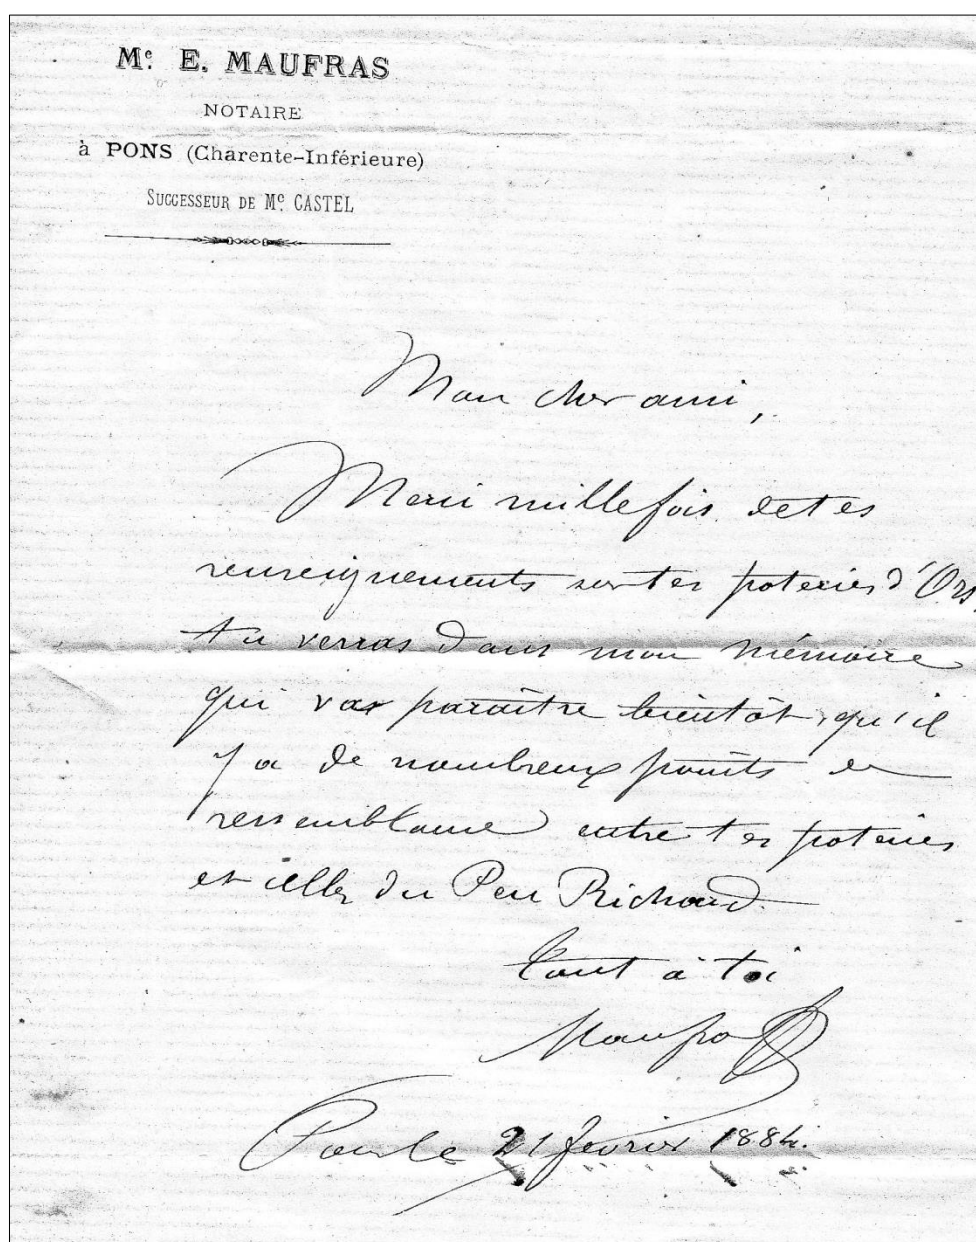 Mᵉ. E. MAUFRAS
NOTAIRE
à PONS (Charente-Inférieure)
SUCCESSEUR DE Mᵉ. CASTEL
Mon cher ami,
Merci mille fois de tes
renseignements sur tes poteries d'Ors.
tu verras dans mon mémoire
qui va paraître bientôt, qu'il
y a de nombreux points de
ressemblance entre tes poteries
et celles du Peu Richard.
tout à toi
Maufras
Pons le 21 février 1884.